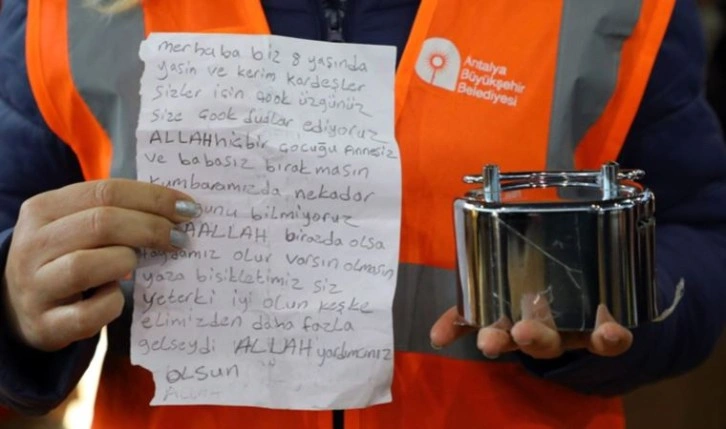 merhaba biz 8 yaşında
yasin ve kerim kardeşler
sizler için çook üzgünüz
size çook dualar ediyoruz
ALLAH hiçbir çocuğu Annesiz
ve babasız bırakmasın
kumbaramızda nekadar
bilmiyoruz
ALLAH birazda olsa
faydamız olur varsın olmasın
yaza bisikletimiz siz
yeterki iyi olun keşke
elimizden daha fazla
gelseydi ALLAH yardımcınız
OLSUN
Antalya
Büyükşehir
Belediyesi